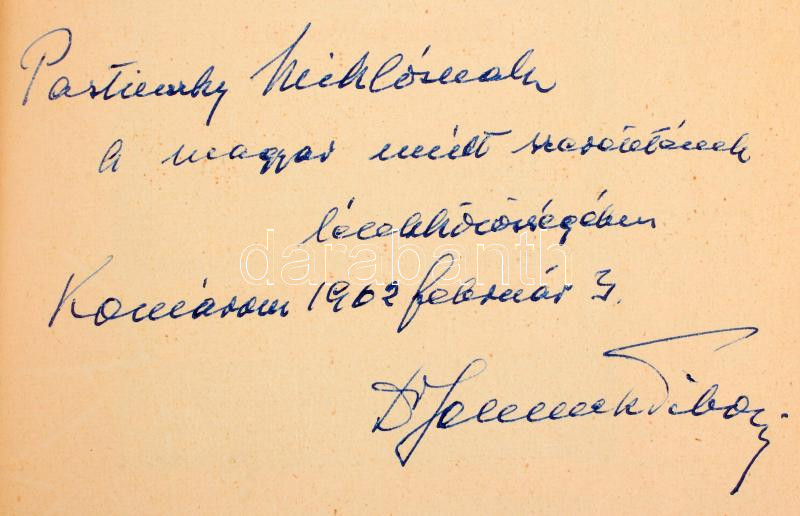 Pastinszky Miklósnak
A magyar múlt szeretetének
lélekközösségében
darabanth
Komárom 1962 február 3.
Dr Tibor